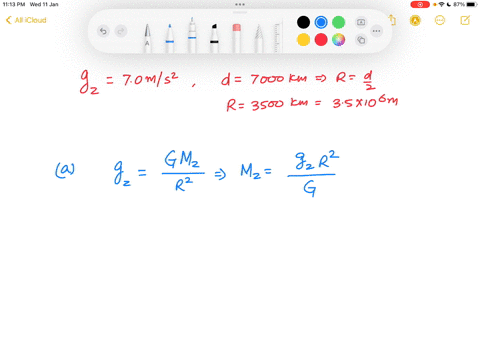 11:13 PM Wed 11 Jan
87%
All iCloud
g₂ = 7.0 m/s² , d = 7000 km ⇒ R = d/2
R = 3500 km = 3.5×10⁶m
(a) g₂ = GM₂/R² ⇒ M₂ = g₂R²/G